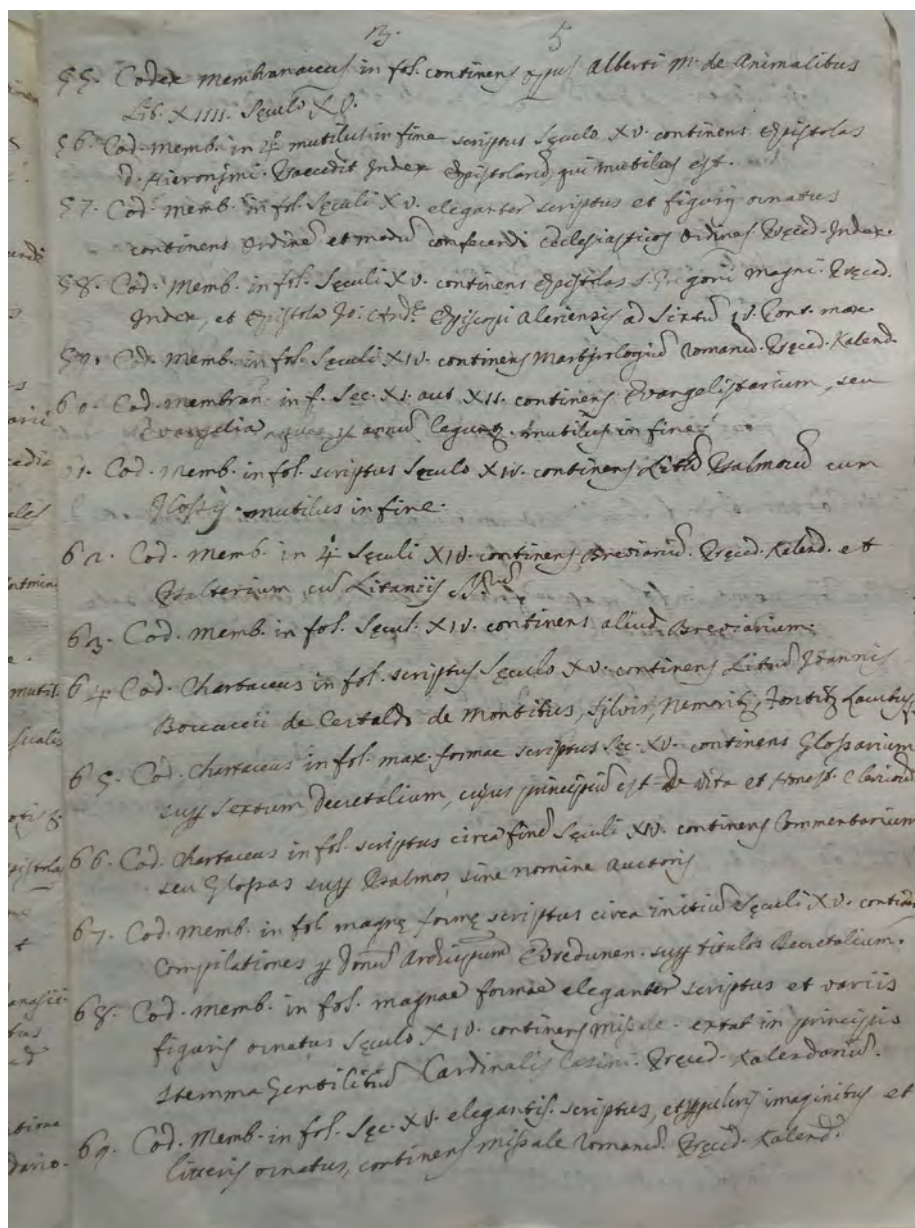 13. 5
55. Codex membranaceus in fol. continens opus Alberti M. de Animalibus
Lib. XIIII. Sęculo XV.
56. Cod. memb. in 4º mutilus in fine scriptus Sęculo XV. continens Epistolas
D. Hieronymi. Praecedit Index Epistolarũ, qui mutilus est.
57. Cod. memb. in fol. Sęculi XV. eleganter scriptus et figuris ornatus
continens ordinẽ et modũ conferendi Ecclesiasticos Ordines. Pręced. Index.
58. Cod. Memb. in fol. Sęculi XV. continens Epistolas S. Gregorii Magni. Pręced.
Index, et Epistola Jo: Andę Episcopi Aleriensis ad Sixtũ IV. Pont. max.
59. Cod. memb. in fol. Sęculi XIV. continens Martyrologiũ Romanũ. Pręced. Kalend.
60. Cod. membran. in f. Sec. XI. aut XII. continens Evangelistarium, seu
Evangelia, quae p annũ legunt. mutilus in fine.
61. Cod. Memb. in fol. scriptus Sęculo XIV. continens Librũ Psalmorũ cum
Glossis. mutilus in fine.
62. Cod. memb. in 4º Sęculi XIV. continens Breviariũ. Pręced. Kalend. et
Psalterium, cũ Litaniis SS.rũ
63. Cod. memb. in fol. Sęcul. XIV. continens aliud Breviarium.
64. Cod. Chartaceus in fol. scriptus Sęculo XV. continens Librũ Joannis
Boccaccii de Certaldo de Montibus, Sylvis, Nemorib, Fontib, Lacubus
65. Cod. chartaceus in fol. max. formae scriptus Sęc. XV. continens Glossarium
sup Sextum Decretalium, cujus principiũ est De vita et Honest. Clericorũ
66. Cod. chartaceus in fol. scriptus circa finẽ Sęculi XIV. continens Commentarium
seu Glossas sup Psalmos, sine nomine auctoris
67. Cod. memb. in fol. magnę formę scriptus circa initiũ Sęculi XV. continens
Compilationes p Donũ Archiepum Ebredunen. sup titulos Decretalium.
68. Cod. memb. in fol. magnae formae eleganter scriptus et variis
figuris ornatus Sęculo XIV. continens missale. extat in principio
Stemma Gentilitiũ Cardinalis Casini. Pręced. Kalendariũ.
69. Cod. Memb. in fol. Sęc. XV. elegantis. scriptus, et pulcris imaginibus et
litteris ornatus, continens missale Romanũ. Pręced. Kalend.